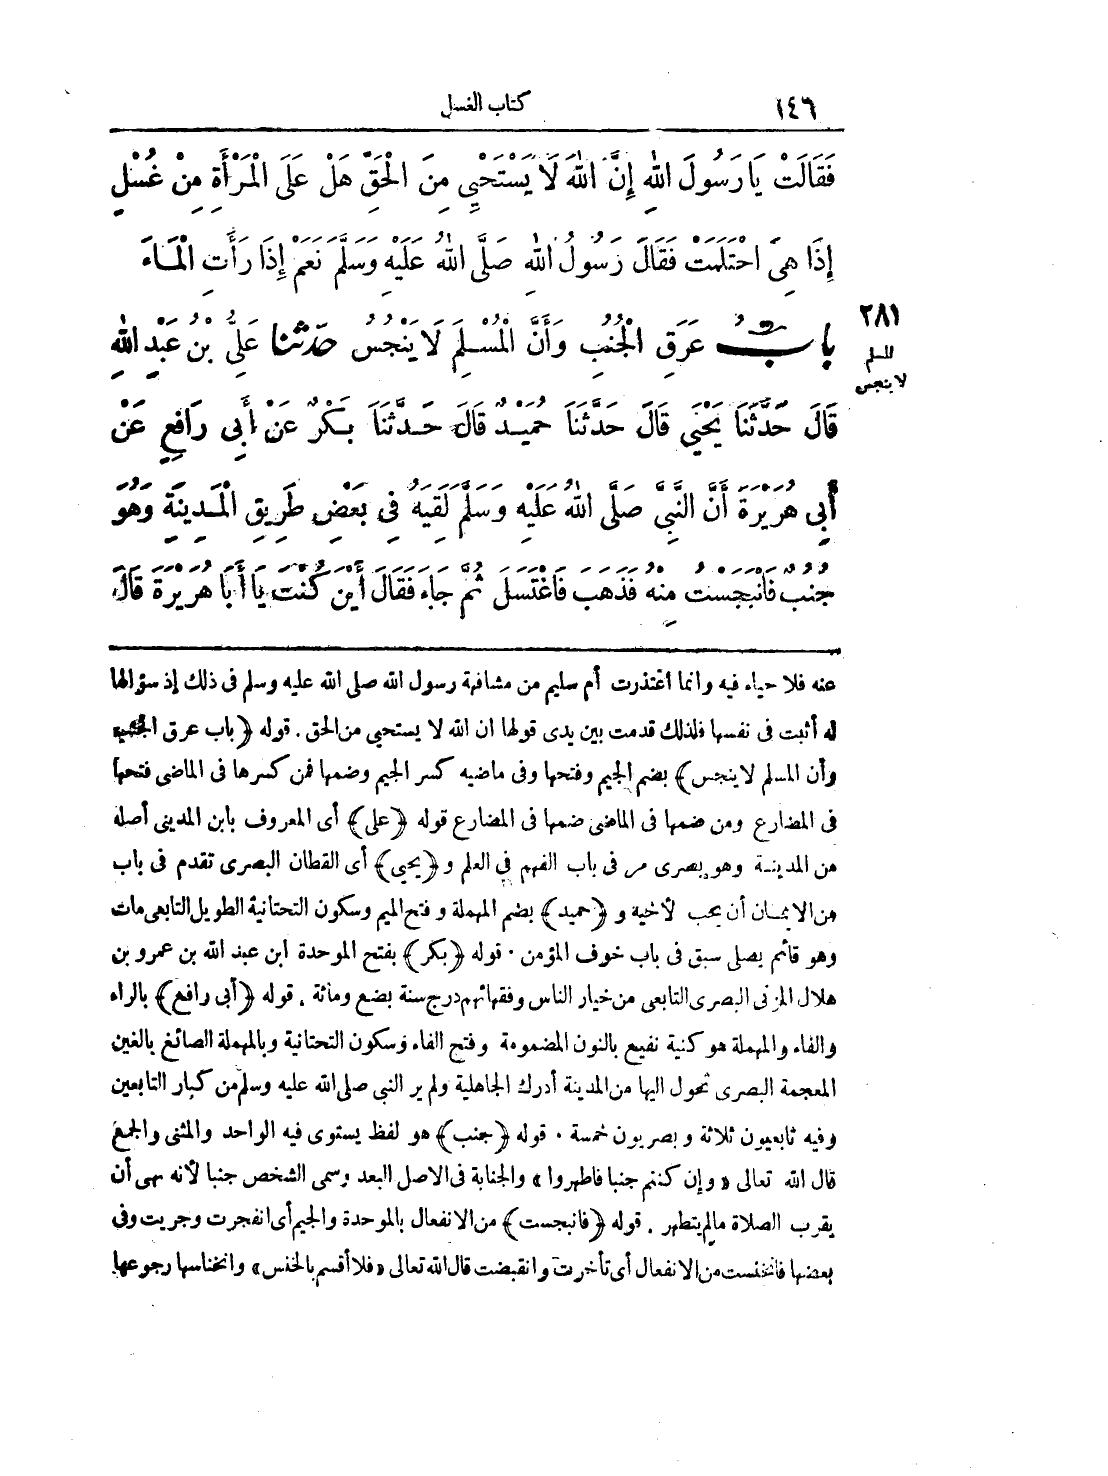 ١٤٦ كتاب الغسل
فَقَالَتْ يَا رَسُولَ اللهِ إِنَّ اللهَ لَا يَسْتَحْيِي مِنَ الْحَقِّ هَلْ عَلَى الْمَرْأَةِ مِنْ غُسْلٍ
إِذَا هِيَ احْتَلَمَتْ فَقَالَ رَسُولُ اللهِ صَلَّى اللهُ عَلَيْهِ وَسَلَّمَ نَعَمْ إِذَا رَأَتِ الْمَاءَ
بابُ عَرَقِ الْجُنُبِ وَأَنَّ الْمُسْلِمَ لَا يَنْجُسُ حدثنا عَلِيُّ بْنُ عَبْدِ اللهِ
٢٨١
المسلم
لا ينجس
قَالَ حَدَّثَنَا يَحْيَى قَالَ حَدَّثَنَا حُمَيْدٌ قَالَ حَدَّثَنَا بَكْرٌ عَنْ أَبِى رَافِعٍ عَنْ
أَبِى هُرَيْرَةَ أَنَّ النَّبِيَّ صَلَّى اللهُ عَلَيْهِ وَسَلَّمَ لَقِيَهُ فِى بَعْضِ طَرِيقِ الْمَدِينَةِ وَهُوَ
جُنُبٌ فَانْبَجَسْتُ مِنْهُ فَذَهَبَ فَاغْتَسَلَ ثُمَّ جَاءَ فَقَالَ أَيْنَ كُنْتَ يَا أَبَا هُرَيْرَةَ قَالَ
عنه فلا حياء فيه وانما اعتذرت أم سليم من مشافهة رسول الله صلى الله عليه وسلم فى ذلك إذ سؤالها
له أثبت فى نفسها فلذلك قدمت بين يدى قولها ان الله لا يستحيي من الحق . قوله ﴿باب عرق الجنب
وأن المسلم لا ينجس﴾ بضم الجيم وفتحها وفى ماضيه كسر الجيم وضمها فمن كسرها فى الماضى فتحها
فى المضارع ومن ضمها فى الماضى ضمها فى المضارع قوله ﴿على﴾ أى المعروف بابن المدينى أصله
من المدينة وهو بصرى مر فى باب الفهم فى العلم و﴿يحيى﴾ أى القطان البصرى تقدم فى باب
من الايمان أن يحب لأخيه و﴿حميد﴾ بضم المهملة وفتح الميم وسكون التحتانية الطويل التابعى مات
وهو قائم يصلى سبق فى باب خوف المؤمن . قوله ﴿بكر﴾ بفتح الموحدة ابن عبد الله بن عمرو بن
هلال المزنى البصرى التابعى من خيار الناس وفقهائهم درج سنة بضع ومائة . قوله ﴿أبى رافع﴾ بالراء
والفاء والمهملة هو كنية نفيع بالنون المضمومة وفتح الفاء وسكون التحتانية وبالمهملة الصائغ بالغين
المعجمة البصرى تحول اليها من المدينة أدرك الجاهلية ولم ير النبى صلى الله عليه وسلم من كبار التابعين
وفيه تابعيون ثلاثة وبصريون خمسة . قوله ﴿جنب﴾ هو لفظ يستوى فيه الواحد والمثنى والجمع
قال الله تعالى «وإن كنتم جنبا فاطهروا» والجنابة فى الاصل البعد وسمى الشخص جنبا لأنه نهى أن
يقرب الصلاة مالم يتطهر . قوله ﴿فانبجست﴾ من الانفعال بالموحدة والجيم أى انفجرت وجريت وفى
بعضها فانخنست من الانفعال أى تأخرت وانقبضت قال الله تعالى «فلا أقسم بالخنس» وانخناسها رجوعها